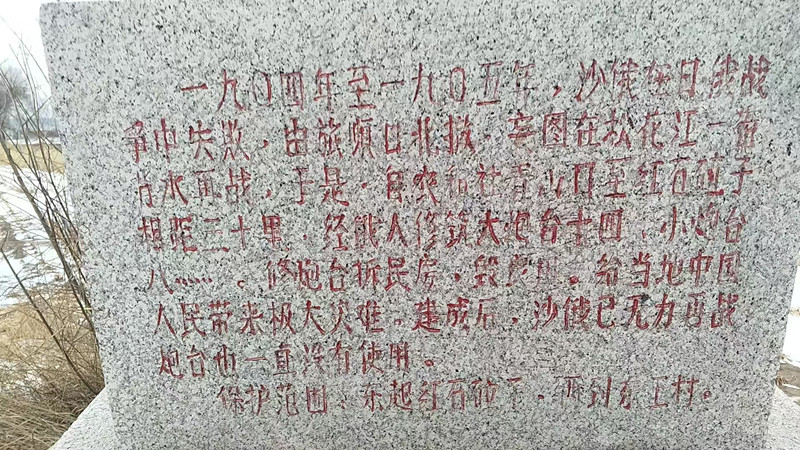 一九〇四年至一九〇五年，沙俄在日俄战
争中失败，由旅顺口北撤，妄图在松花江一带
背水再战，于是，自农和社青山口至红石砬子
相距三十里，经俄人修筑大炮台十四，小炮台
八……。修炮台拆民房，毁良田。给当地中国
人民带来极大灾难。建成后，沙俄已无力再战
炮台也一直没有使用。
保护范围：东起红石砬子，西到王村。